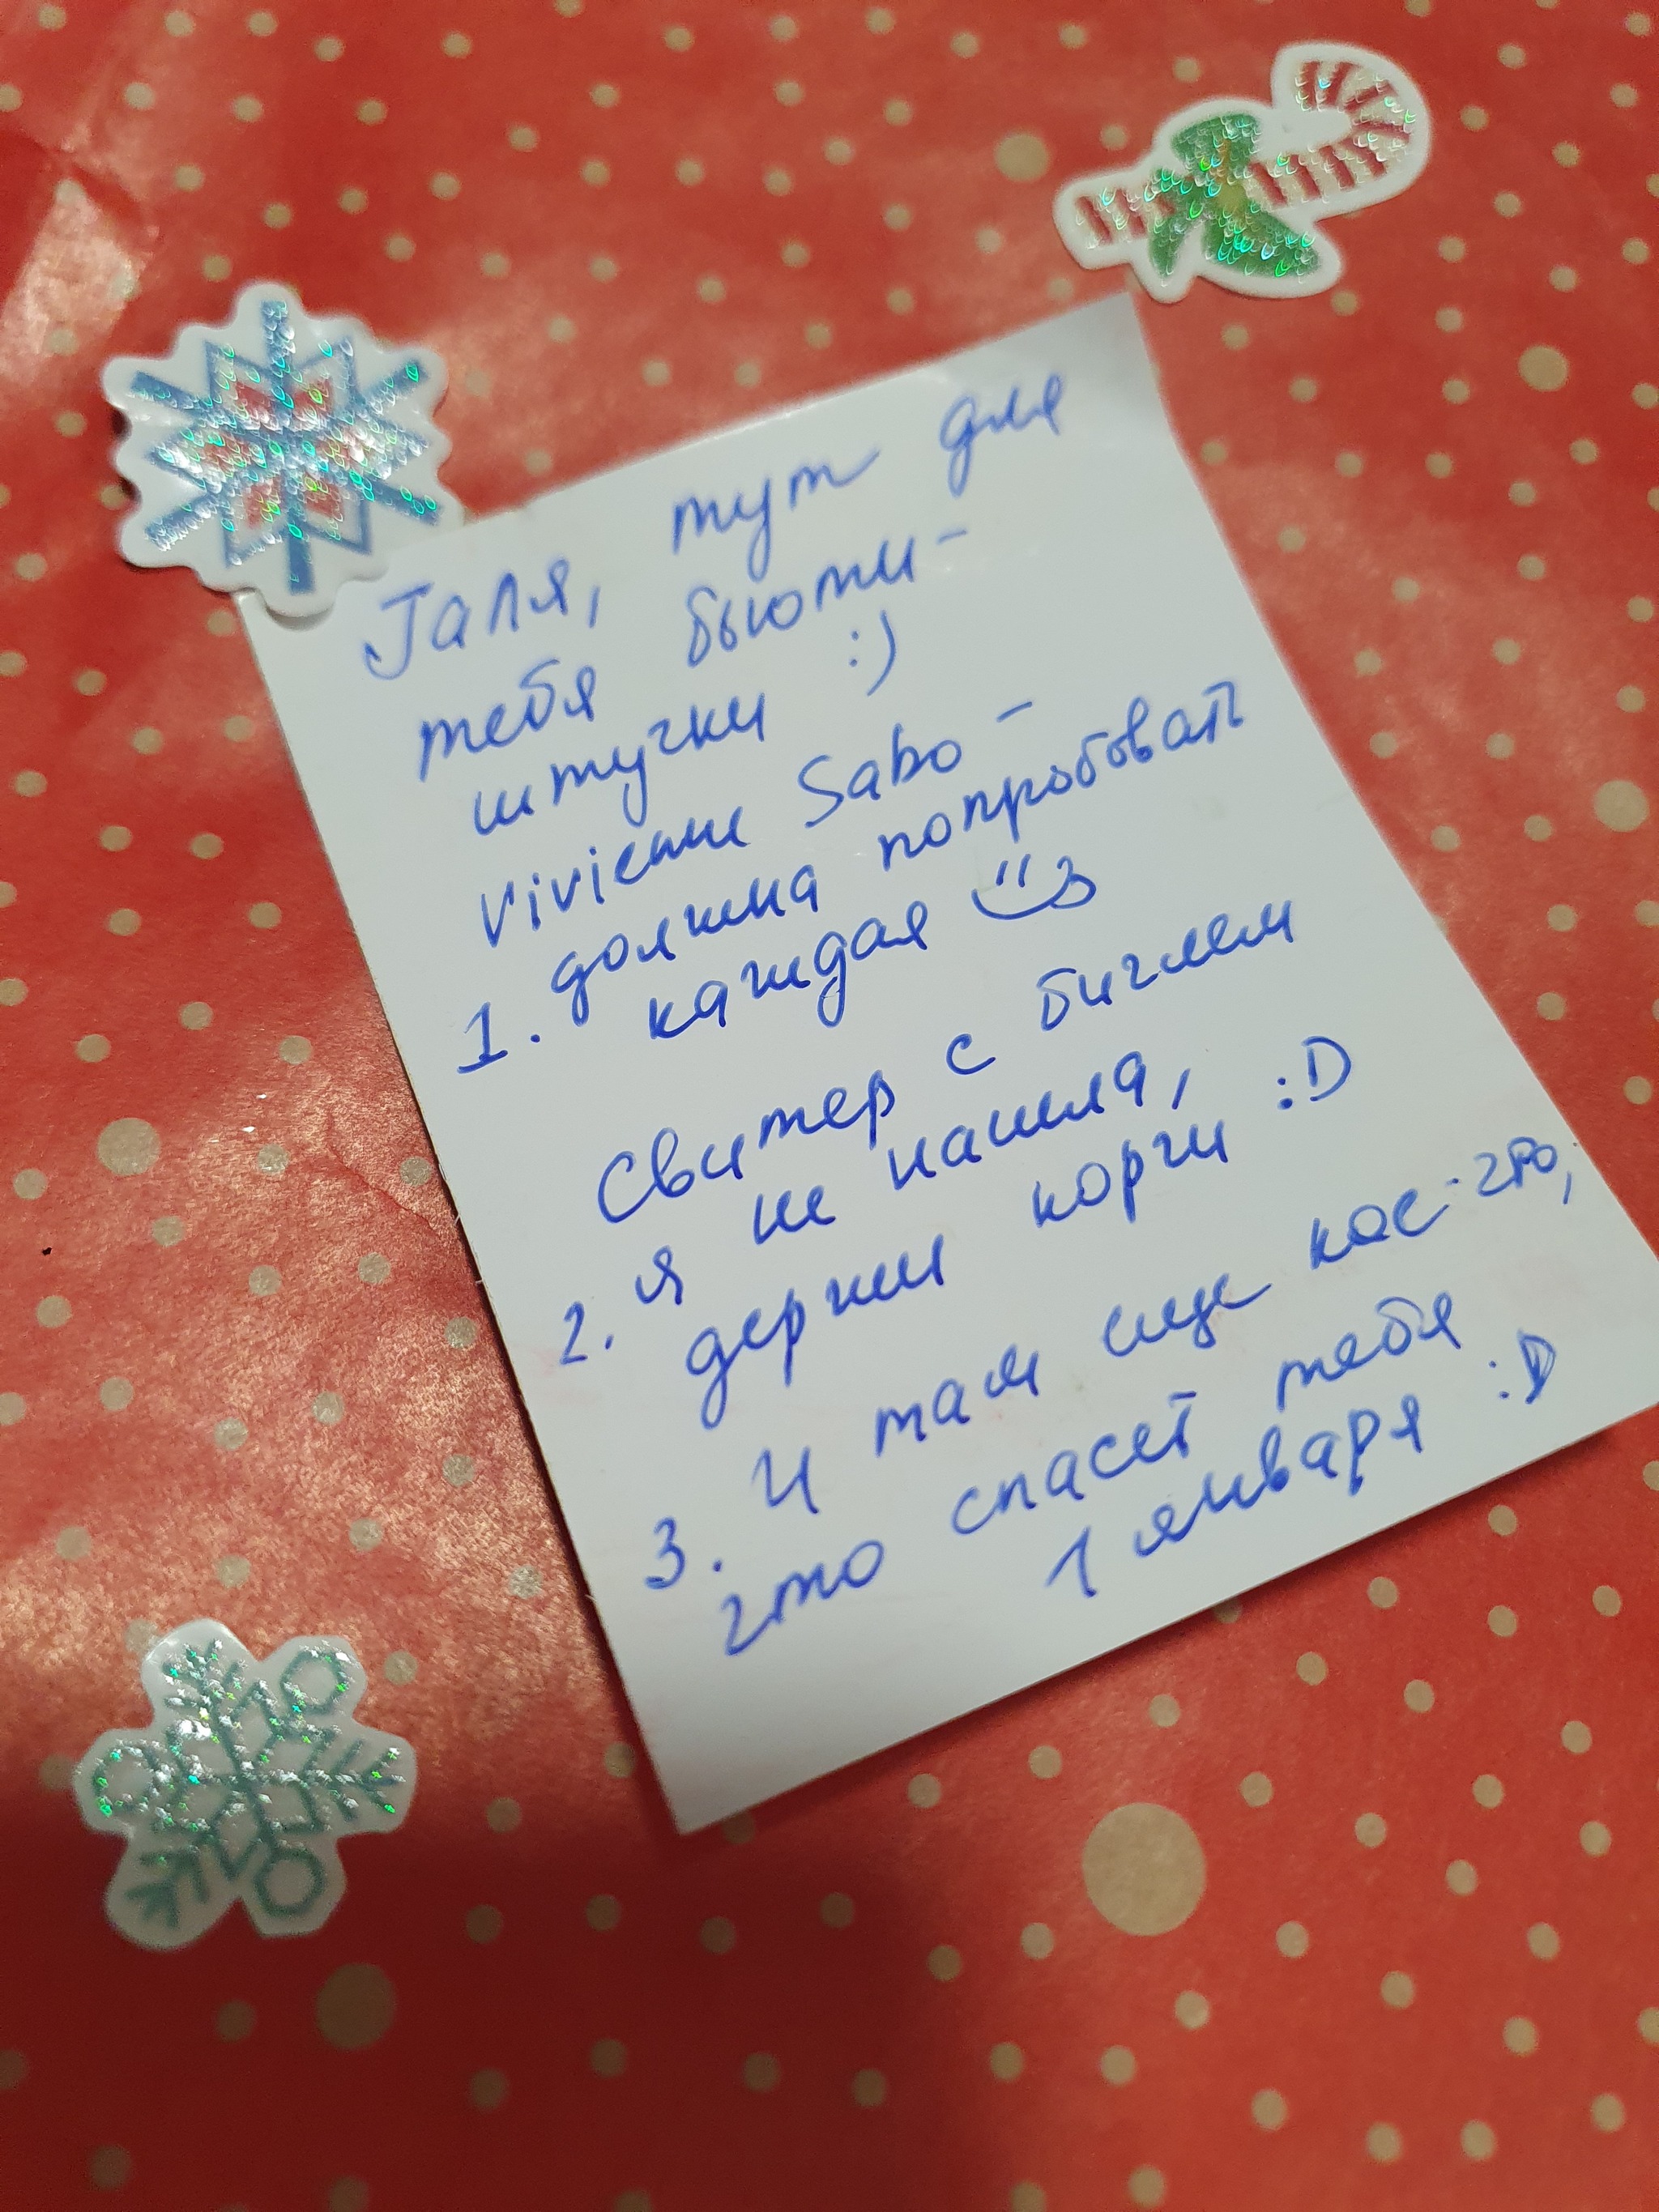 Галя, тут для
тебя бьюти-
штучки :)
Vivienne Sabo -
1. должна попробовать
каждая
Свитер с биглем
2. я не нашла,
держи корги :D
3. И там еще кое-что,
что спасет тебя
1 января :D